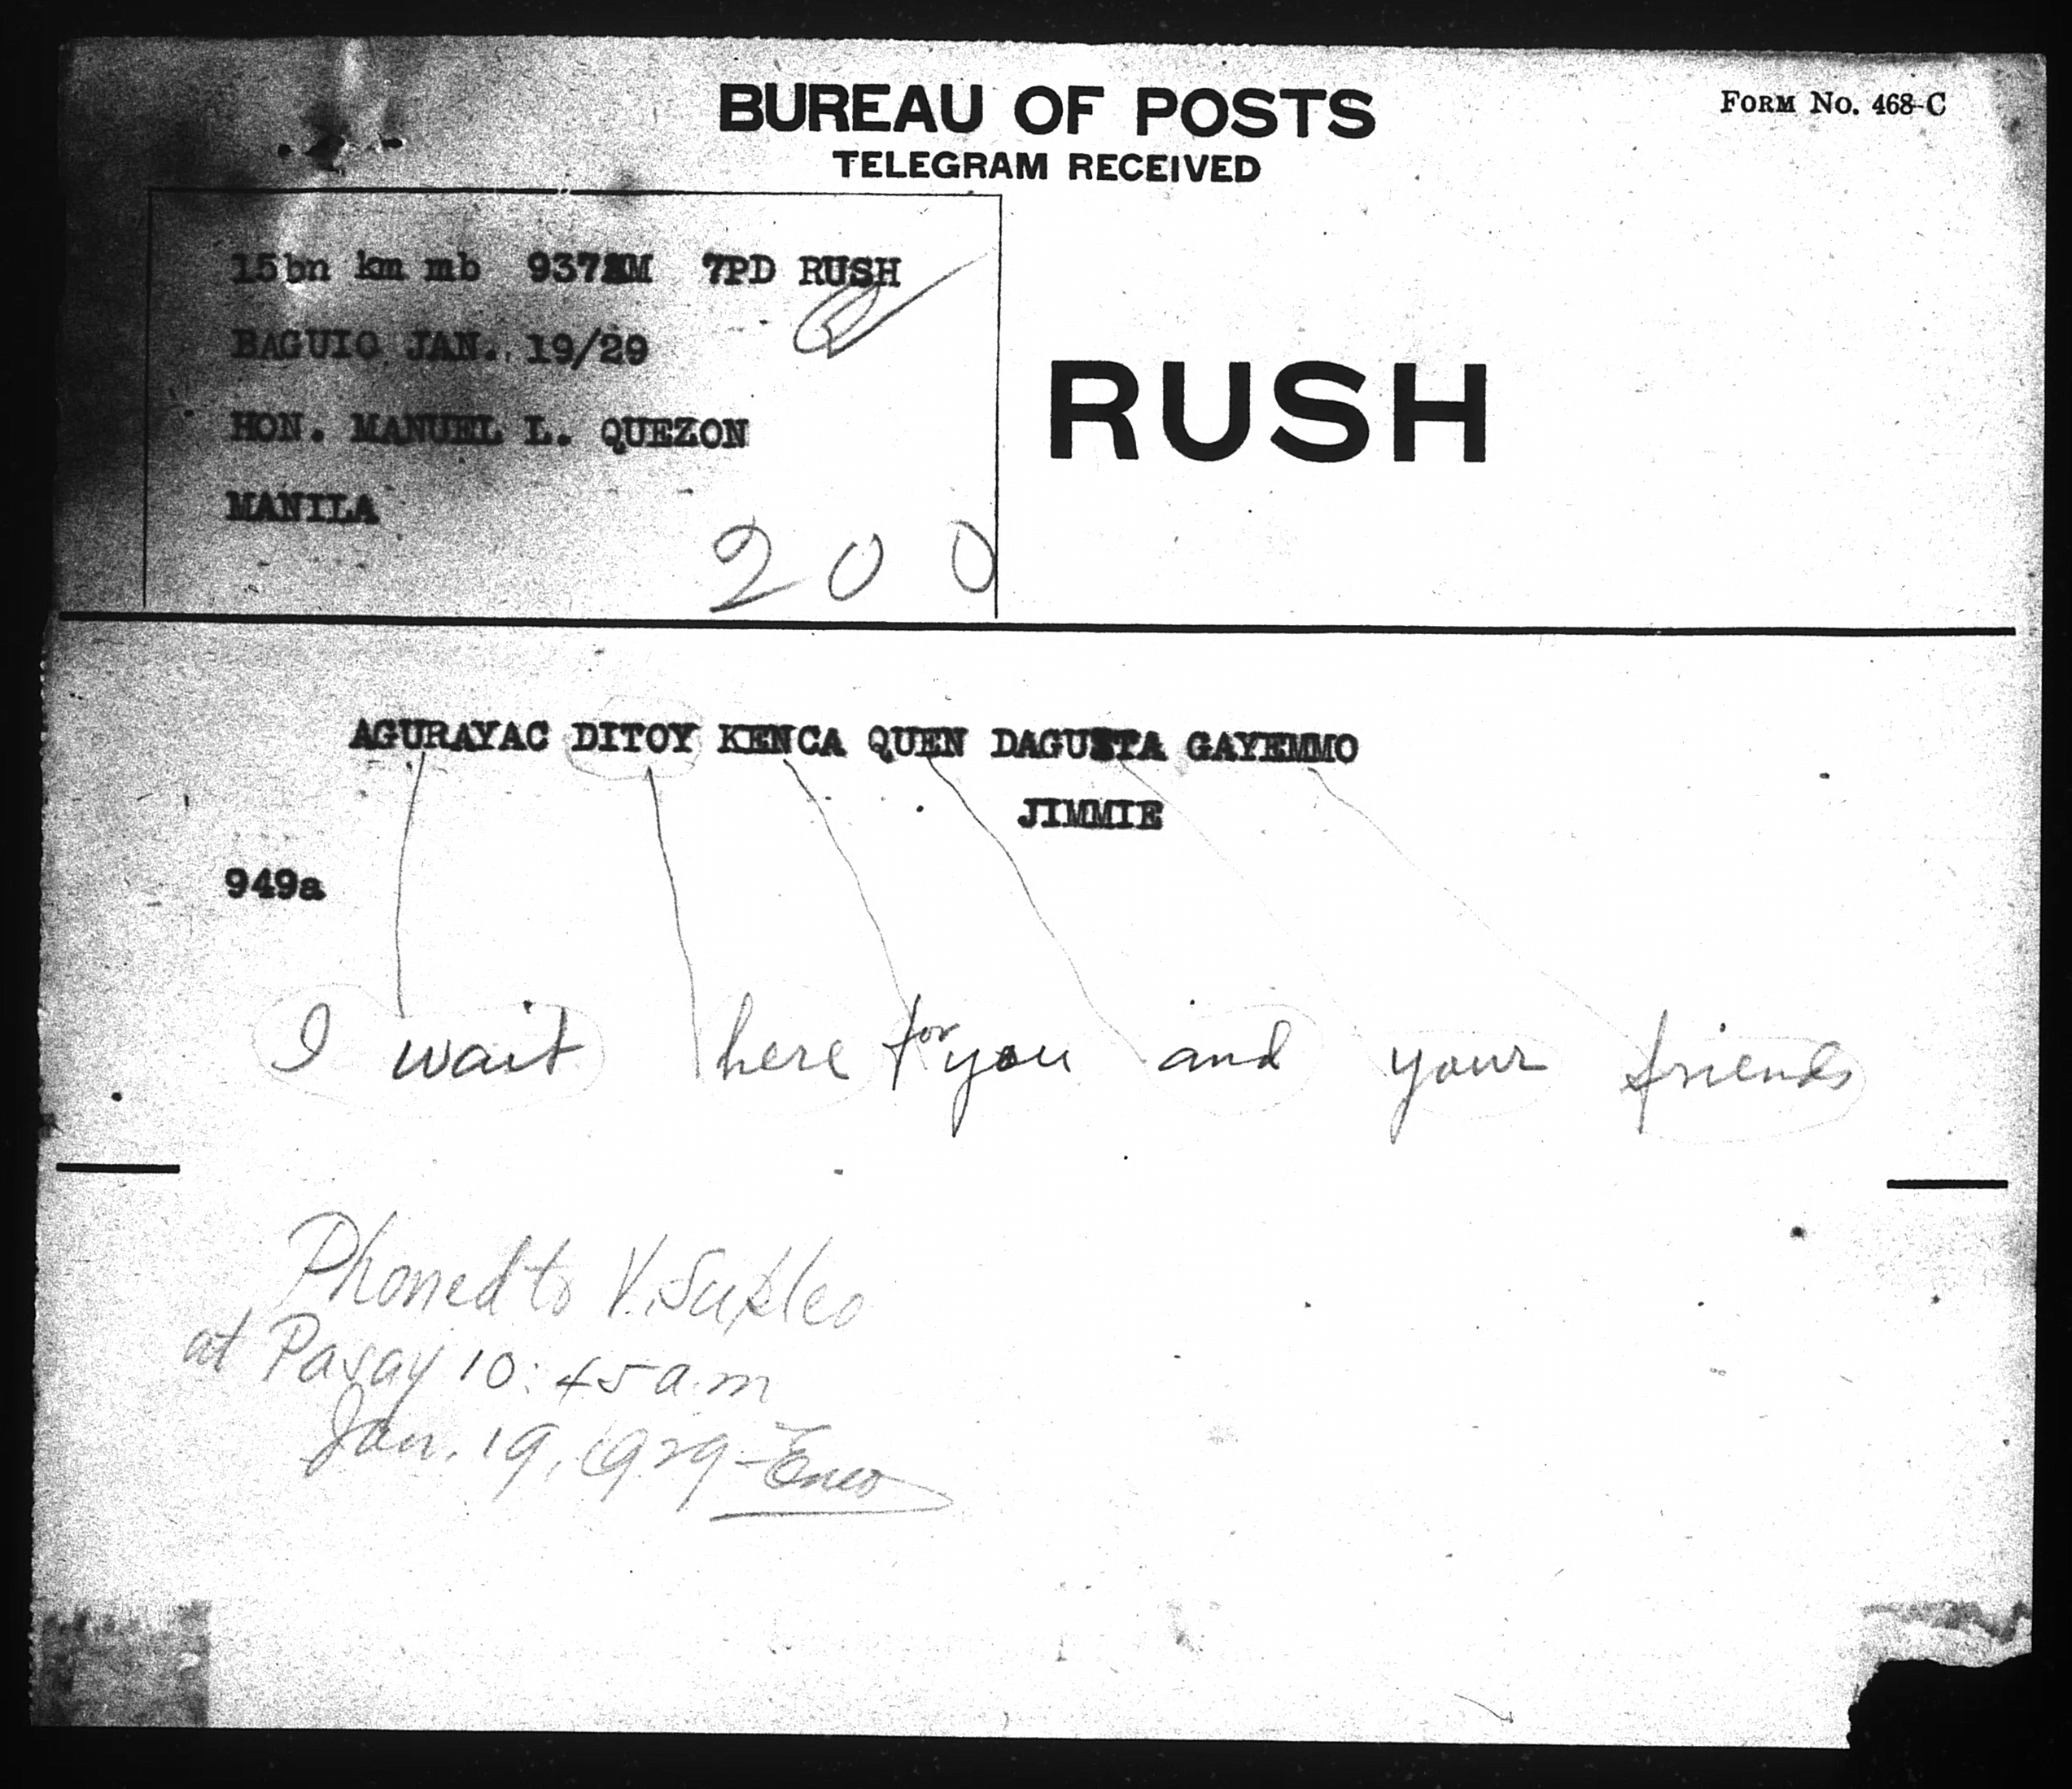 BUREAU OF POSTS
FORM No. 468-C
TELEGRAM RECEIVED
15bn km mb 937AM 7PD RUSH
BAGUIO JAN. 19/29
HON. MANUEL L. QUEZON
MANILA
200
RUSH
AGURAYAC DITOY KENCA QUEN DAGUSTA GAYEMMO
JIMMIE
949a
I wait here for you and your friends
Phoned to V.
at Pasay 10:45 a.m
Jan. 19, 1929 -